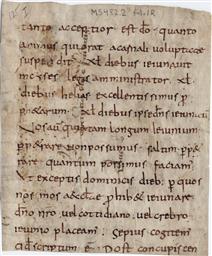 MS 482.2 fol. 1R
tanto acceptior est dō. quanto
animus quiorat acarnali voluptate
suspendit xl diebus ieiunauit
moyses legis amministrator. xl.
diebus helias excellentissimus p
p&arum. xl diebus ipse dns ieiunauit
Nos aū quitam longum ieiunium
p&rare nonpossumus. saltim p&
rare quantum possimus faciam
Vt exceptis dominicis dieb; p quos
nos mos aecclae phib& ieiunare
dno nro. uel cottidiano. uel crebro
ieiunio placeam. Sepius cogitem
scriptum ē. Post concupiscen